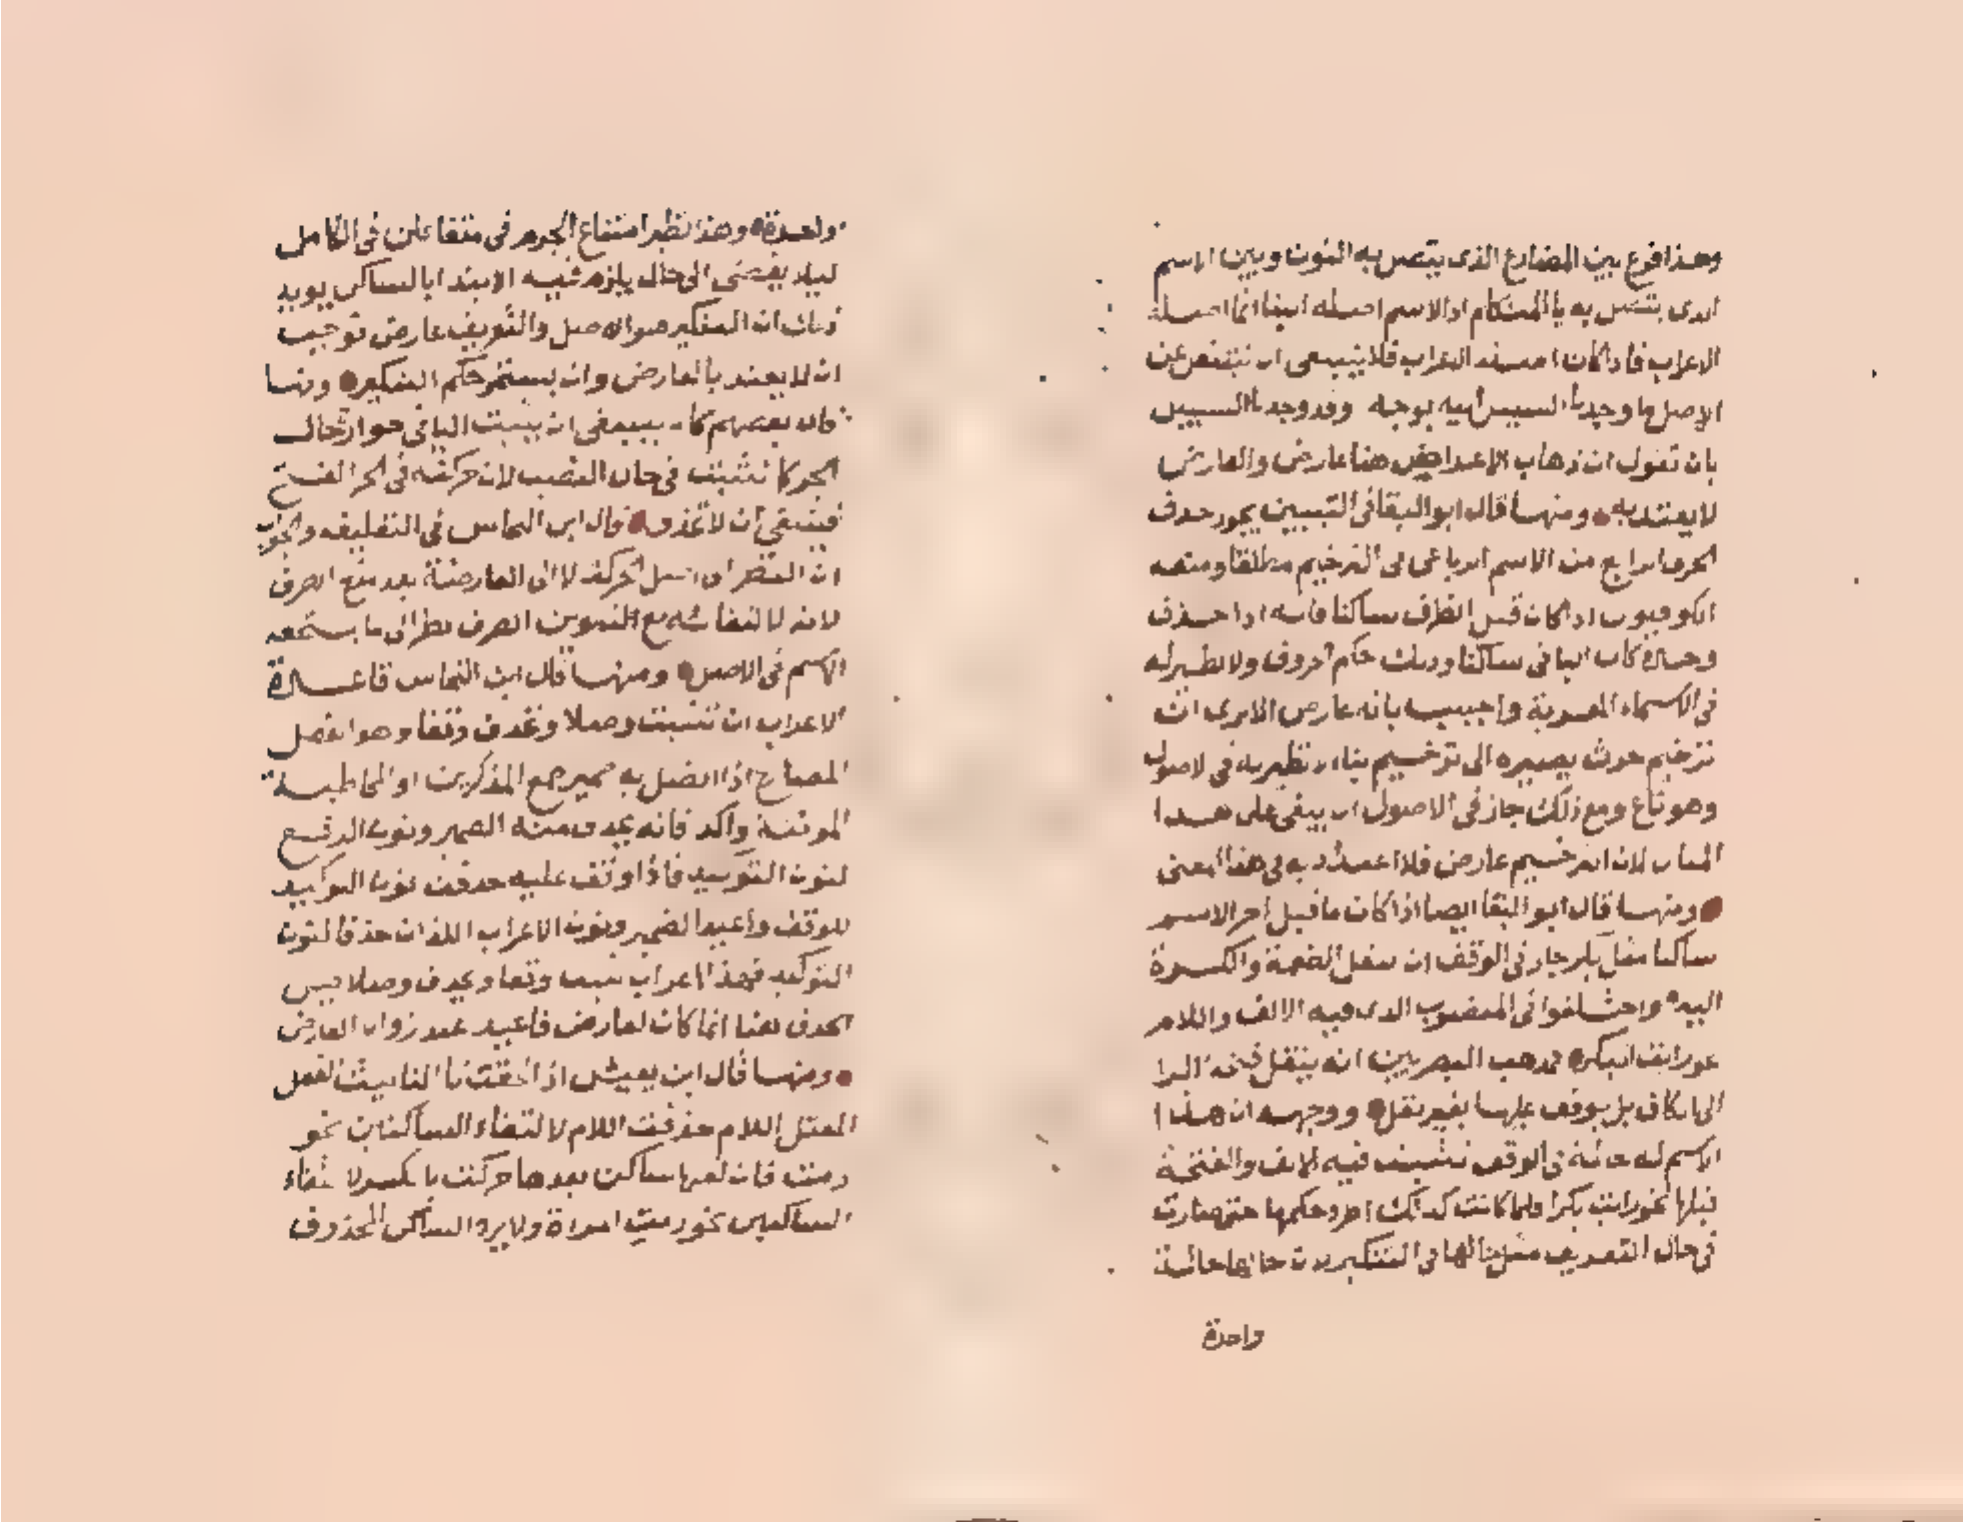 وهذا فرع بين المضارع الذى يتصل به النون وبين الاسم
الذى يتصل به يا المتكلم اذ الاسم اصله البنا انما اصله
الاعراب فاذا كان اصله الاعراب فلا ينبغى ان ننتقض عن
الاصل ما وجدنا السبيل اليه بوجه وقد وجدنا السبيل
بان تقول ان ذهاب الاعراب هنا عارض والعارض
لا يعتد به ومنها قال ابو البقا فى التبيين يجوز حذف
الحرف الرابع من الاسم الرباعى فى الترخيم مطلقا ومنعه
الكوفيون اذا كان قبل الطرف ساكنا فانه اذا حذف
وحده كان الباقى ساكنا وذلك حكم الحروف ولا نظير له
فى الاسماء المعربة واجيب بانه عارض الا ترى ان
ترخيم حرث يصيره الى ترخيم بناء نظير له فى الاصول
وهو ناع ومع ذلك جاز فى الاصول ان يبقى على هذا
المثال لان الترخيم عارض فلا اعتداد به فى هذا المعنى
ومنها قال ابو البقا ايضا اذا كان ما قبل اخر الاسم
ساكنا مثل بكر جاز فى الوقف ان تنقل الضمة والكسرة
اليه واختلفوا فى المنصوب الذى فيه الالف واللام
نحو رايت البكر فمذهب البصريين انه ينقل فتحة الرا
الى الكاف بل يوقف عليها بغير نقل ووجهه ان هذا
الاسم له حالة فى الوقف تثبت فيه الالف والفتحة
قبلها نحو رايت بكرا فلما كانت كذلك اجرى حكمها حتى صارت
فى حال التعريف مثل حالها فى التنكير حالها حالة
واحدة
واحدة وهذا نظير امتناع الجزم فى متفاعلن فى الكامل
ليلا يفضى الى حال يلزم فيه الابتدا بالساكن يويد
ذلك ان التنكير هو الاصل والتعريف عارض فوجب
ان لا يعتد بالعارض وان يستمر حكم التنكير ومنها
قال بعضهم كان ينبغى ان يثبت اليا فى جوار حال
الجر كما تثبت فى حال النصب لان حركته فى الجر الفتح
فينبغى ان لا تحذف قال ابن النحاس فى التعليقه والجواب
ان النظر الى اصل الحركة لا الى العارضة بعد منع الصرف
لانه لا التفات مع التنوين الصرف نظر الى ما يستحقه
الاسم فى الاصل ومنها قال ابن النحاس قاعدة
الاعراب ان تثبت وصلا وتحذف وقفا وهو الفعل
المضارع اذا اتصل به ضمير جمع المذكرين او المخاطبة
المونثة واكد فانه يحذف منه الضمير ونون الرفع
لنون التوكيد فاذا وقف عليه حذفت نون التوكيد
للوقف واعيد الضمير ونون الاعراب اللذان حذفا لنون
التوكيد فهذا اعراب يثبت وقفا ويحذف وصلا
الحذف هنا انما كان لعارض فاعيد عند زوال العارض
ومنها قال ابن يعيش اذا لحقت تا التانيث الفعل
المعتل اللام حذفت اللام لالتقاء الساكنين نحو
رمت فان لقيها ساكن بعدها حركت بالكسر لالتقاء
الساكنين نحو رمت امراة ولا يرد الساكن المحذوف